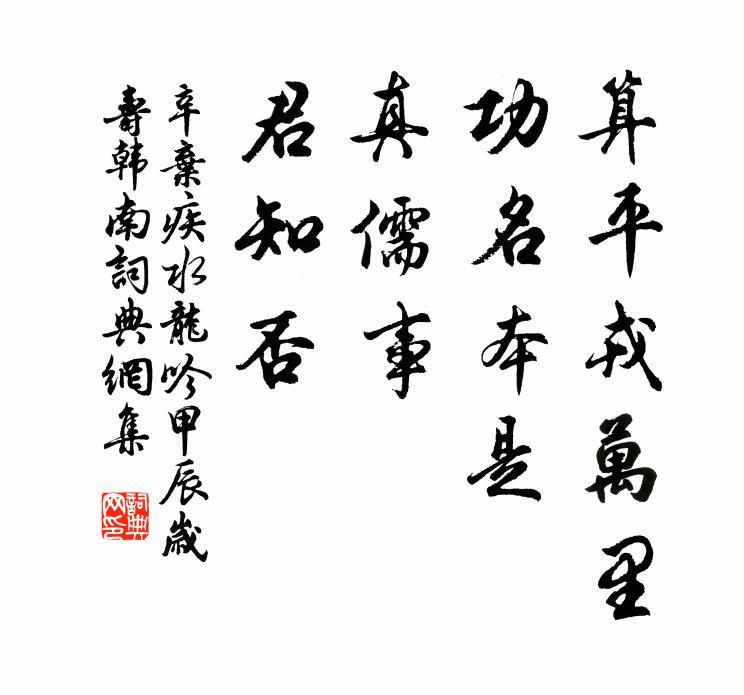 算平戎萬里
功名本是
真儒事
君知否
辛棄疾水龍吟甲辰歲
壽韓南詞典網集
詞典
网印